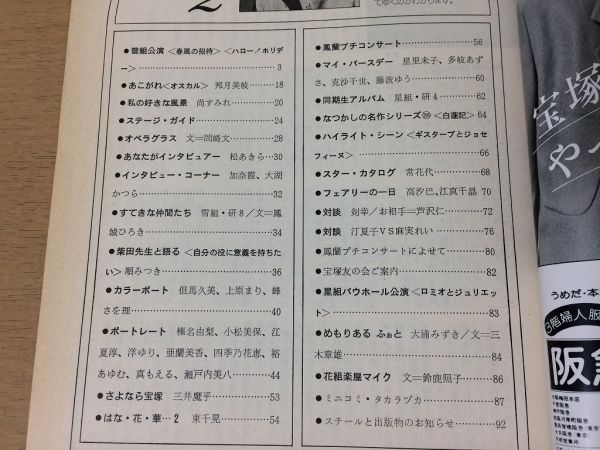 2
てゆくのがわかります。
●雪組公演 <春風の招待> <ハロー!ホリデ
ー>……3
●あこがれ<オスカル> 邦月美岐……18
●私の好きな風景 尚すみれ……20
●ステージ・ガイド……24
●オペラグラス 文=岡崎文……28
●あなたがインタビュアー 松あきら…30
●インタビュー・コーナー 加奈霞、大湖
かつら……32
●すてきな仲間たち 雪組・研8/文=鳳
城ひろき……34
●柴田先生と語る <自分の役に意義を持ちた
い> 順みつき……36
●カラーポート 但馬久美、上原まり、峰
さを理……40
●ポートレート 榛名由梨、小松美保、江
夏淳、洋ゆり、亜蘭美香、四季乃花恵、裕
あゆむ、真もえる、瀬戸内美八……44
●さよなら宝塚 三井魔乎……53
●はな・花・華…2 東千晃……54
●鳳蘭プチコンサート……56
●マイ・バースデー 星里未子、多岐あず
さ、克沙千世、藤波ゆう……60
●同期生アルバム 星組・研4……62
●なつかしの名作シリーズ <白蓮記> 64
●ハイライト・シーン <ギスターブとジョセ
フィーヌ>……66
●スター・カタログ 常花代……68
●フェアリーの一日 高汐巴、江真千晶 70
●対談 剣幸/お相手=芦沢仁……72
●対談 汀夏子VS麻実れい……76
●鳳蘭プチコンサートによせて……80
●宝塚友の会ご案内……82
●星組バウホール公演 <ロミオとジュリエッ
ト>……83
●めもりある ふぉと 大浦みずき/文=三
木章雄……84
●花組楽屋マイク 文=鈴鹿照子……86
●ミニコミ・タカラヅカ……87
●スチールと出版物のお知らせ……92
宝塚
や
うめだ・本
3階婦人服
阪急